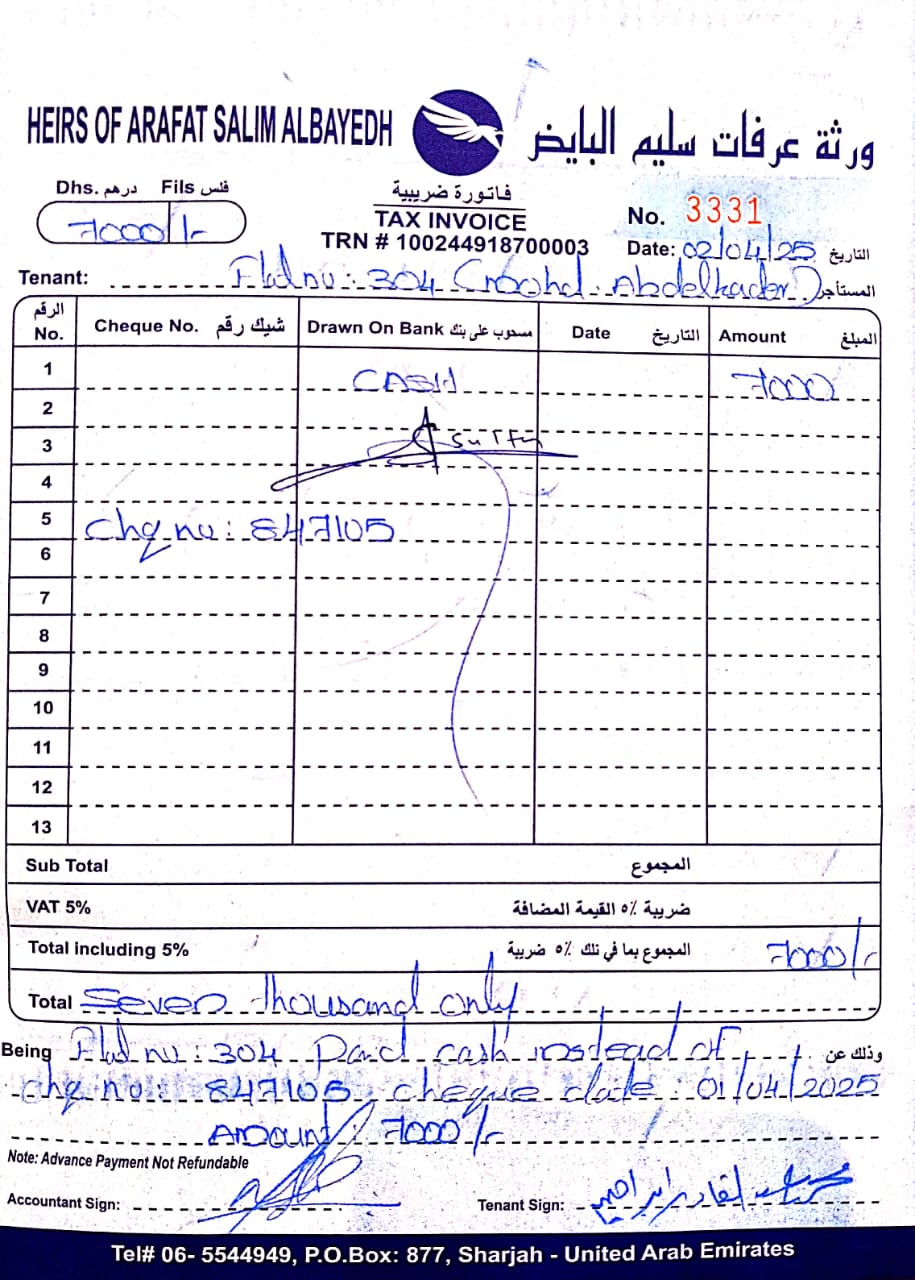 HEIRS OF ARAFAT SALIM ALBAYEDH
ورثة عرفات سليم البايض
Dhs. درهم Fils فلس
7000/-
فاتورة ضريبية
TAX INVOICE
TRN # 100244918700003
No. 3331
Date: 02/04/25 التاريخ
Tenant: Flad nu: 304 Abdelkader) المستأجر
الرقم No. Cheque No. شيك رقم Drawn On Bank مسحوب على بنك Date التاريخ Amount المبلغ
1 CASH 7000
2
3
4
5 Chq nu: 847105
6
7
8
9
10
11
12
13
Sub Total المجموع
VAT 5% ضريبة ٥٪ القيمة المضافة
Total including 5% المجموع بما في ذلك ٥٪ ضريبة 7000/-
Total Seven thousand only
Being Flad nu: 304 paid cash instead of وذلك عن
chq no: 847105, cheque date: 01/04/2025
Amount: 7000/-
Note: Advance Payment Not Refundable
Accountant Sign: Tenant Sign:
Tel# 06- 5544949, P.O.Box: 877, Sharjah - United Arab Emirates